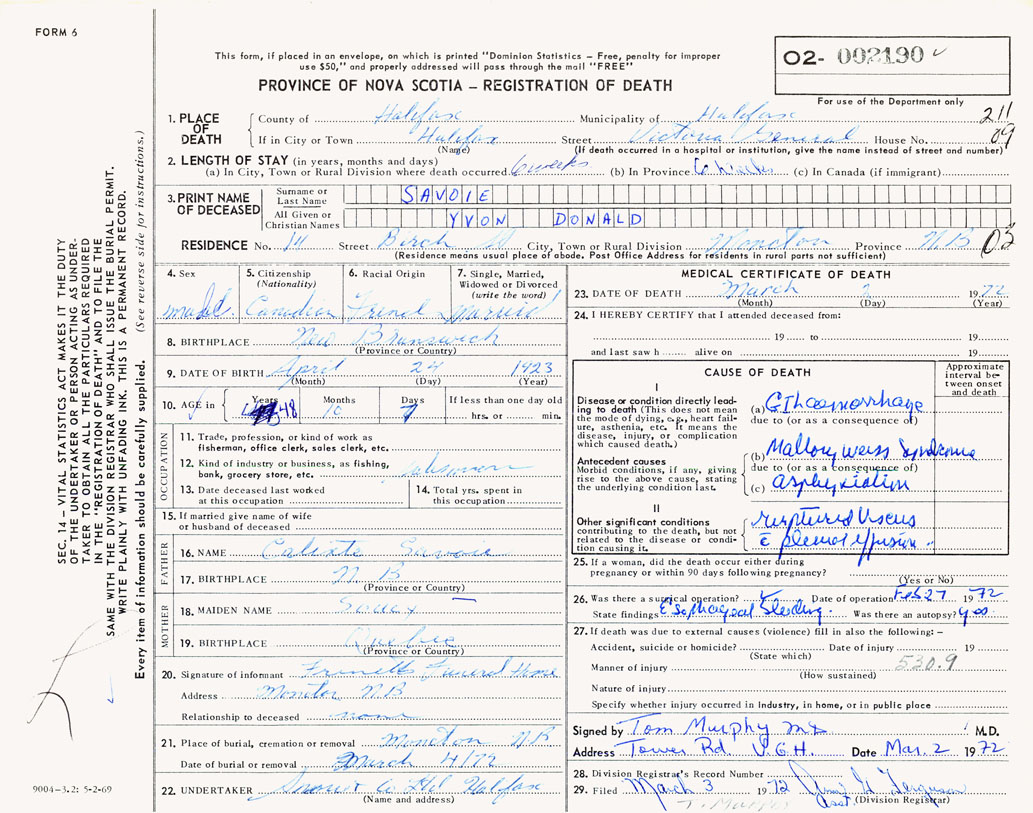 FORM 6
This form, if placed in an envelope, on which is printed "Dominion Statistics – Free, penalty for improper
use $50," and properly addressed will pass through the mail "FREE"
PROVINCE OF NOVA SCOTIA – REGISTRATION OF DEATH
O2- 002190
For use of the Department only
211
09
1. PLACE OF DEATH
County of Halifax Municipality of Halifax
If in City or Town Halifax Street Victoria General House No.
(Name) (If death occurred in a hospital or institution, give the name instead of street and number)
2. LENGTH OF STAY (in years, months and days)
(a) In City, Town or Rural Division where death occurred 6 weeks (b) In Province 6 weeks (c) In Canada (if immigrant)
3. PRINT NAME OF DECEASED
Surname or Last Name SAVOIE
All Given or Christian Names YVON DONALD
RESIDENCE No. 14 Street Birch St City, Town or Rural Division Moncton Province N.B 03
(Residence means usual place of abode. Post Office Address for residents in rural parts not sufficient)
4. Sex
5. Citizenship
(Nationality)
6. Racial Origin
7. Single, Married,
Widowed or Divorced
(write the word)
male Canadian French Married
8. BIRTHPLACE New Brunswick
(Province or Country)
9. DATE OF BIRTH April 24 1923
(Month) (Day) (Year)
10. AGE in Years Months Days If less than one day old
48 10 7 hrs. or min.
OCCUPATION
11. Trade, profession, or kind of work as
fisherman, office clerk, sales clerk, etc.
12. Kind of industry or business, as fishing,
bank, grocery store, etc. salesman
13. Date deceased last worked
at this occupation
14. Total yrs. spent in
this occupation
15. If married give name of wife
or husband of deceased
FATHER
16. NAME Calixte Savoie
17. BIRTHPLACE N B
(Province or Country)
MOTHER
18. MAIDEN NAME
19. BIRTHPLACE Quebec
(Province or Country)
20. Signature of informant Funeral Home
Address Moncton N.B
Relationship to deceased none
21. Place of burial, cremation or removal Moncton N B
Date of burial or removal March 4/72
22. UNDERTAKER Snow & Co Ltd Halifax
(Name and address)
MEDICAL CERTIFICATE OF DEATH
23. DATE OF DEATH March 2 1972
(Month) (Day) (Year)
24. I HEREBY CERTIFY that I attended deceased from:
19 to 19
and last saw h alive on 19
CAUSE OF DEATH
Approximate
interval be-
tween onset
and death
I
Disease or condition directly lead-
ing to death (This does not mean
the mode of dying, e.g., heart fail-
ure, asthenia, etc. It means the
disease, injury, or complication
which caused death.)
(a) GI haemorrhage
due to (or as a consequence of)
Antecedent causes
Morbid conditions, if any, giving
rise to the above cause, stating
the underlying condition last.
(b) Mallory weiss syndrome
due to (or as a consequence of)
(c) asphyxiation
II
Other significant conditions
contributing to the death, but not
related to the disease or condi-
tion causing it.
ruptured viscus
c̄ pleural effusion
25. If a woman, did the death occur either during
pregnancy or within 90 days following pregnancy?
(Yes or No)
26. Was there a surgical operation? ✓ Date of operation Feb 27 1972
State findings Esophageal bleeding Was there an autopsy? yes
27. If death was due to external causes (violence) fill in also the following: –
Accident, suicide or homicide? Date of injury 19
(State which)
Manner of injury 530.9
(How sustained)
Nature of injury
Specify whether injury occurred in Industry, in home, or in public place
Signed by Tom Murphy M.D.
Address Tower Rd V.G.H. Date Mar. 2 1972
28. Division Registrar's Record Number
29. Filed March 3 1972 Ferguson
Asst. (Division Registrar)
T. Murphy
SEC. 14 – VITAL STATISTICS ACT MAKES IT THE DUTY
OF THE UNDERTAKER OR PERSON ACTING AS UNDER-
TAKER TO OBTAIN ALL THE PARTICULARS REQUIRED
IN THE "REGISTRATION OF DEATH" AND TO FILE THE
SAME WITH THE DIVISION REGISTRAR WHO SHALL ISSUE THE BURIAL PERMIT.
WRITE PLAINLY WITH UNFADING INK. THIS IS A PERMANENT RECORD.
Every item of information should be carefully supplied. (See reverse side for instructions.)
9004-3.2: 5-2-69